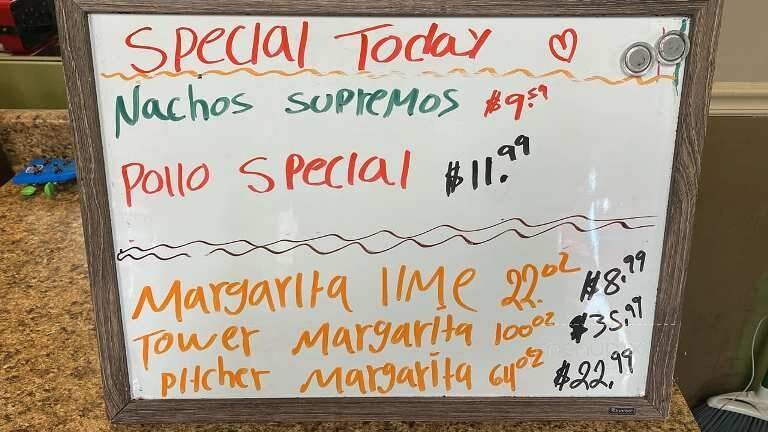 Special Today
Nachos supremos $9.59
Pollo Special $11.99
Margarita lime 22.oz $8.99
Tower Margarita 100oz $35.99
Pitcher Margarita 64oz $22.99